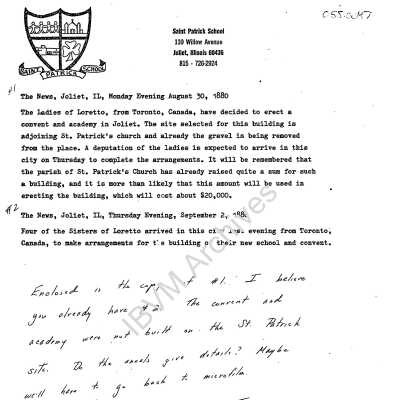 C55:SCM7
SAINT PATRICK SCHOOL
Saint Patrick School
110 Willow Avenue
Joliet, Illinois 60436
815 - 726-2924
#1
The News, Joliet, IL, Monday Evening August 30, 1880
The Ladies of Loretto, from Toronto, Canada, have decided to erect a
convent and academy in Joliet. The site selected for this building is
adjoining St. Patrick's church and already the gravel in being removed
from the place. A deputation of the ladies is expected to arrive in this
city on Thursday to complete the arrangements. It will be remembered that
the parish of St. Patrick's Church has already raised quite a sum for such
a building, and it is more than likely that this amount will be used in
erecting the building, which will cost about $20,000.
#2
The News, Joliet, IL, Thursday Evening, September 2, 188
Four of the Sisters of Loretto arrived in this evening from Toronto,
Canada, to make arrangements for the building of their new school and convent.
Enclosed is the copy of #1. I believe
you already have #2. The convent and
academy were not built on the St. Patrick
site. Do the annals give details? Maybe
we'll have to go back to microfilm.
IBVM Archives